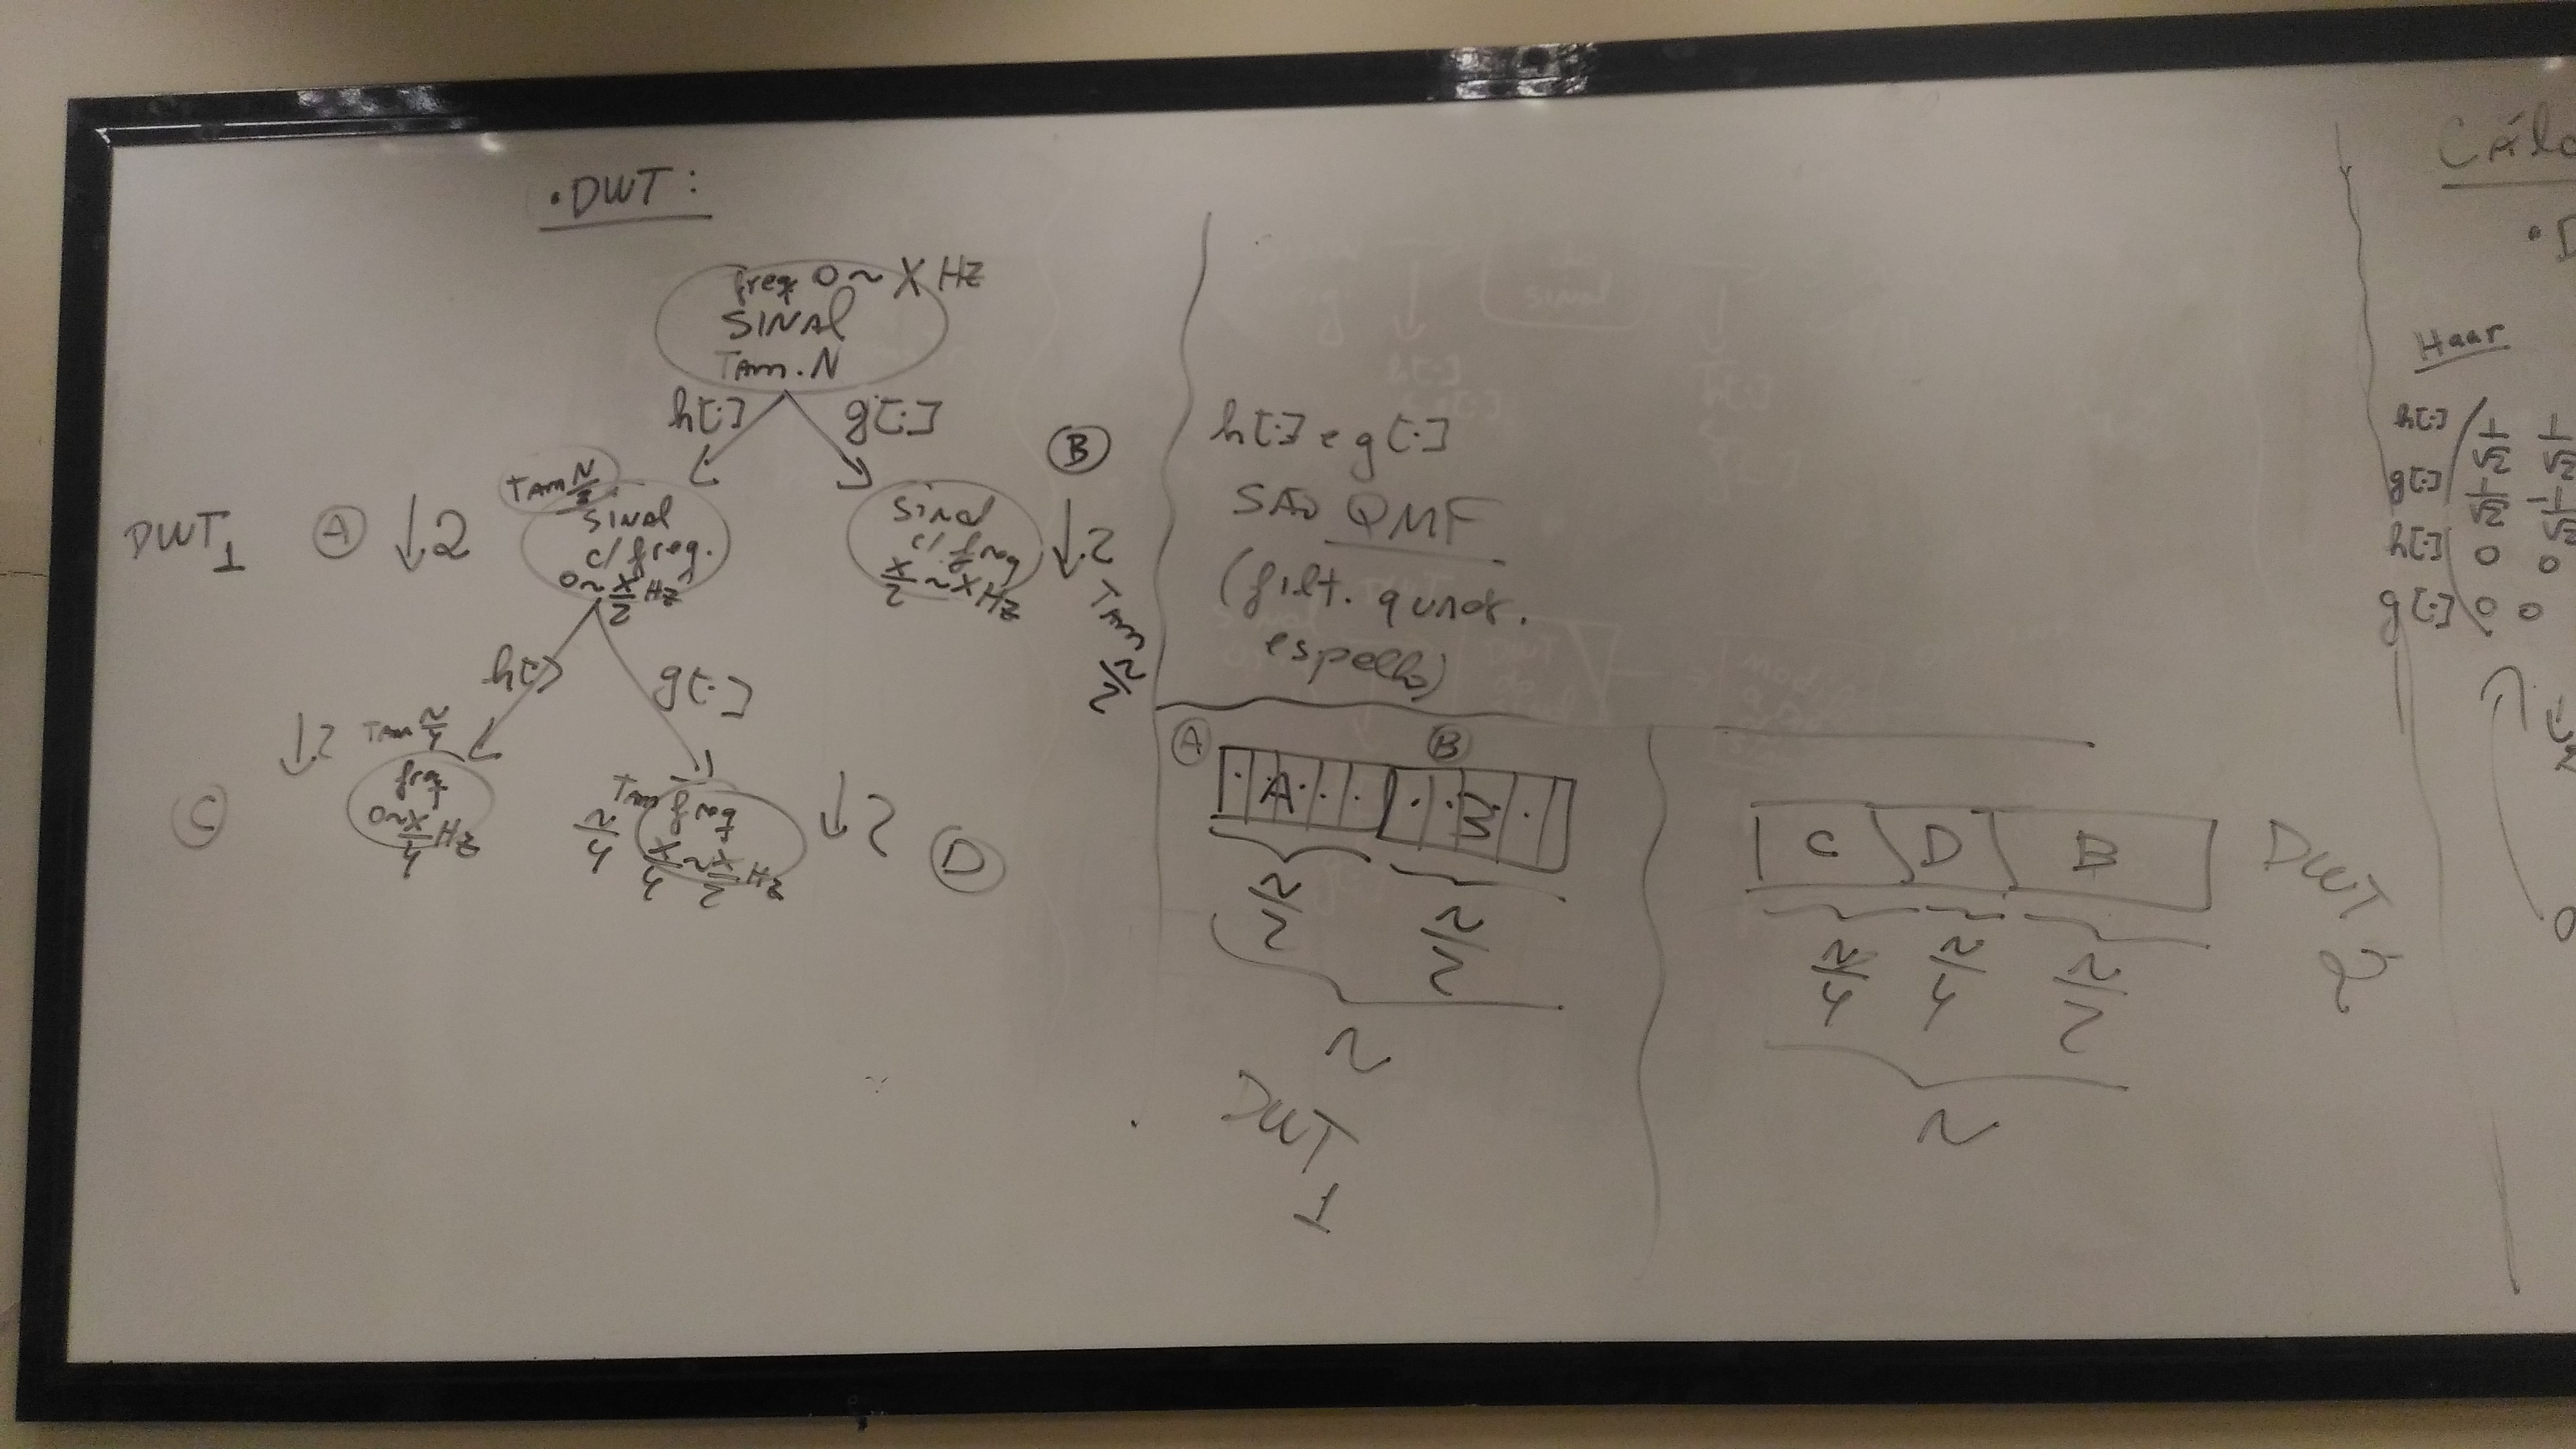 • DWT:
freq 0 ~ X Hz
SINAL
Tam. N
h[·]
g[·]
DWT 1
A
↓2
Tam N/2
SINAL
c/ freq.
0 ~ X/2 Hz
Sinal
c/ freq
X/2 ~ X Hz
B
↓2
Tam N/2
h[·]
g[·]
C
↓2
Tam N/4
freq
0 ~ X/4 Hz
Tam N/4
freq
X/4 ~ X/2 Hz
↓2
D
h[·] e g[·]
SÃO QMF
(filt. quadr.
espelho)
A
B
A
B
N/2
N/2
N
DWT
1
C
D
B
N/4
N/4
N/2
N
DWT
2
Haar
h[·] 1/√2 1/√2
g[·] 1/√2 -1/√2
h[·] 0 0
g[·] 0 0